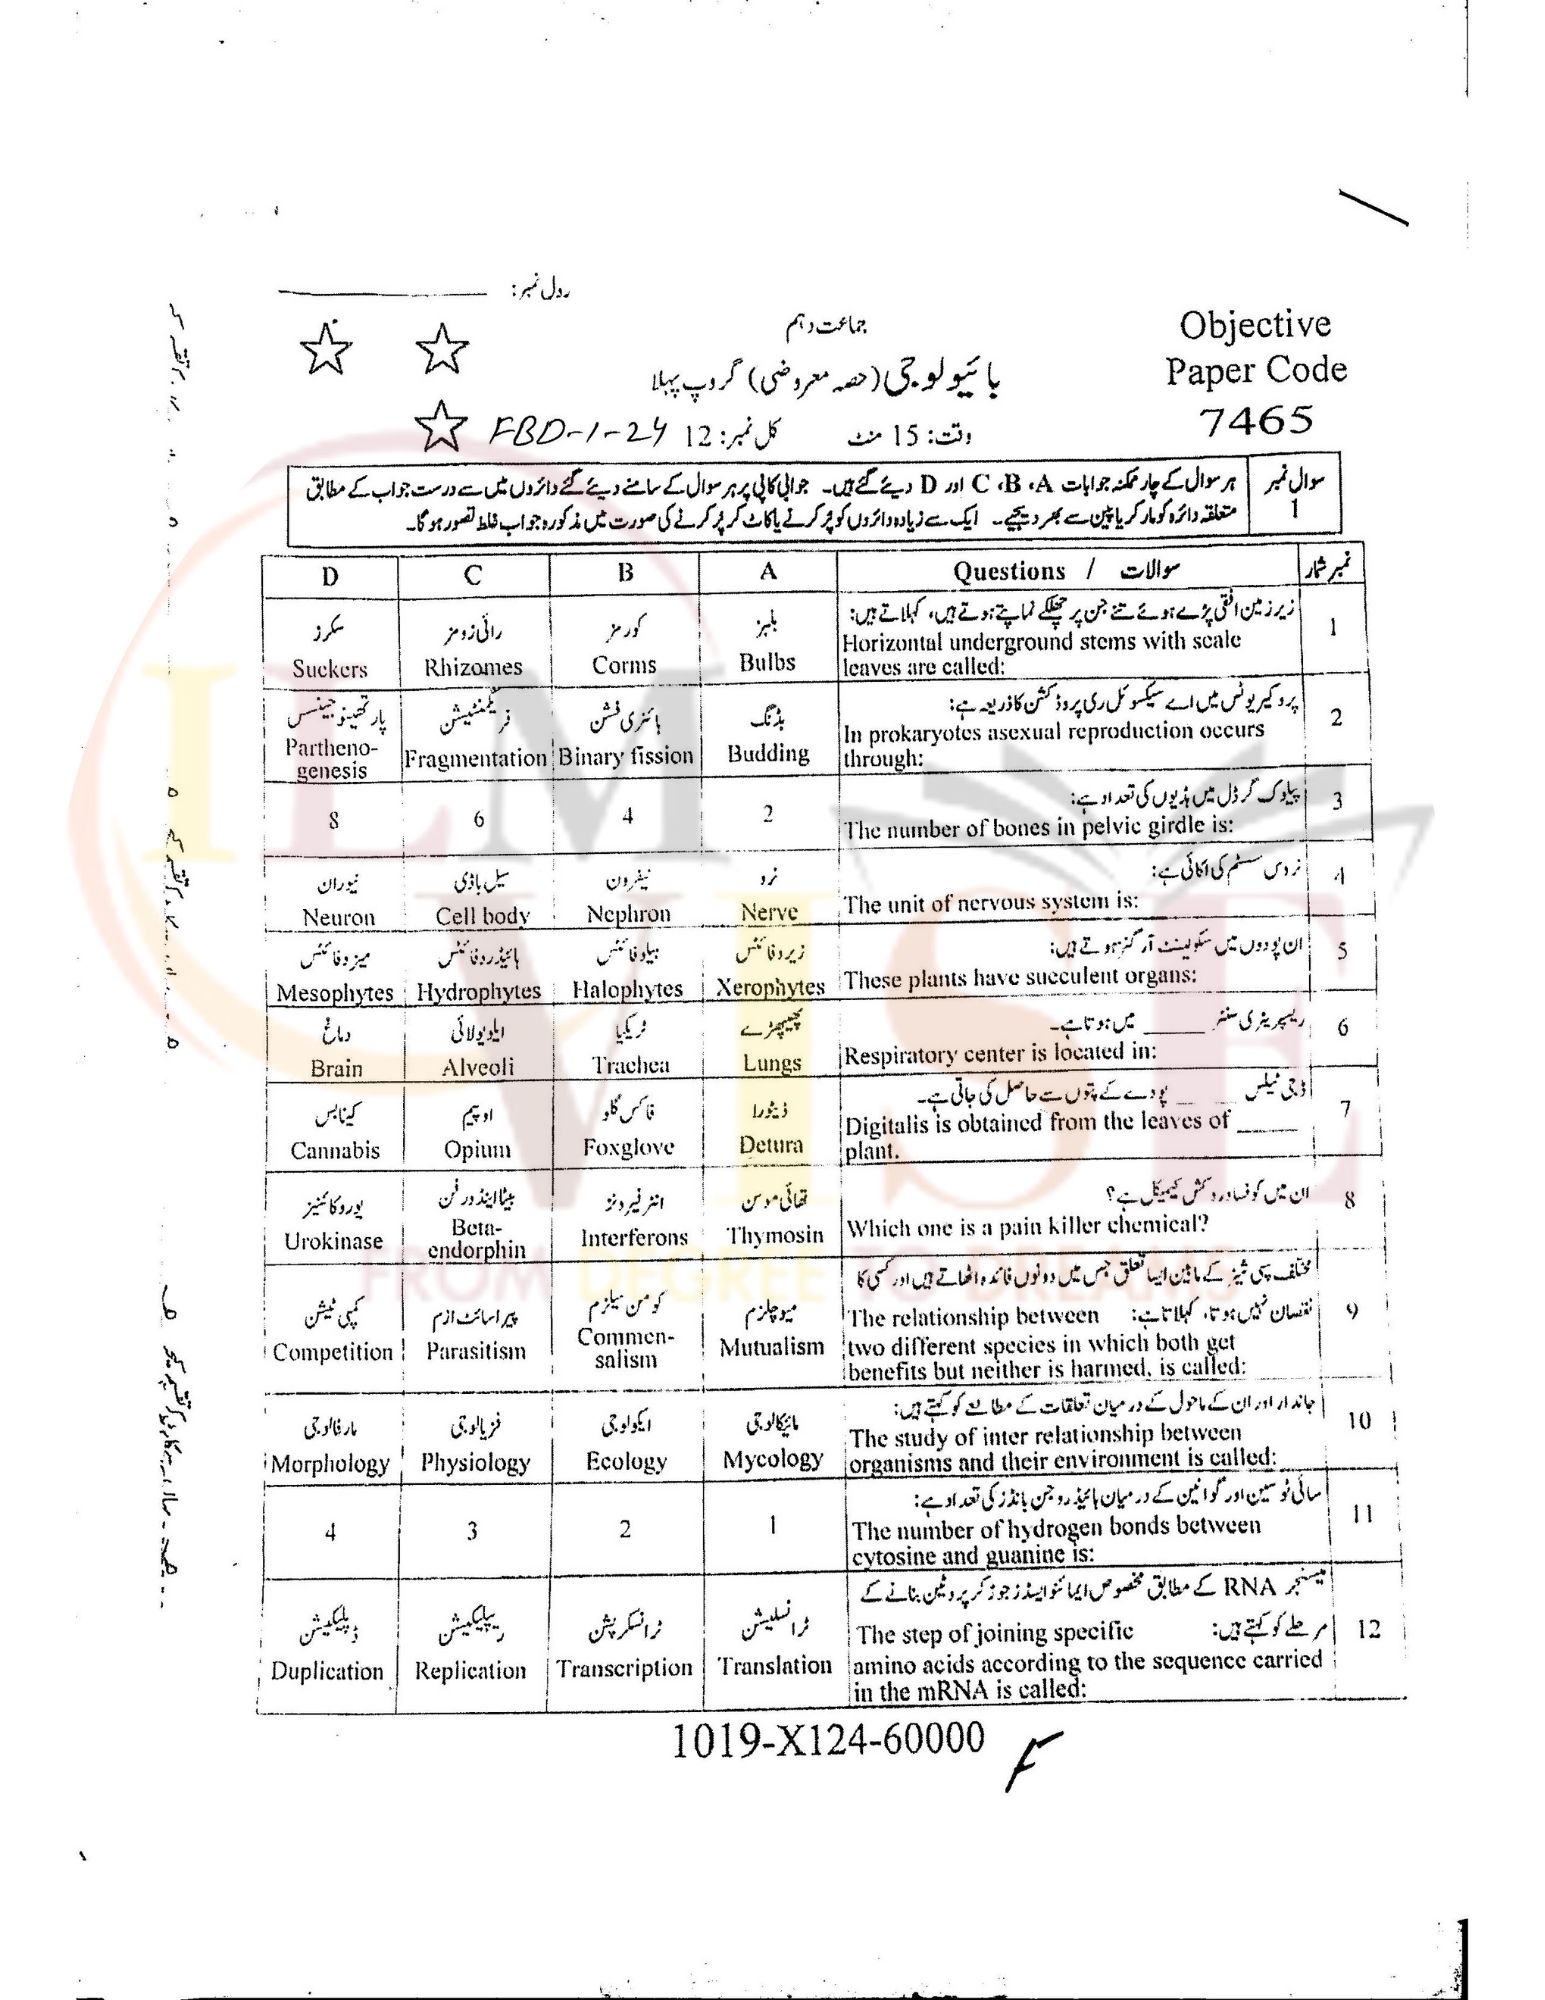 رول نمبر:
جماعت دہم
Objective
Paper Code
7465
بائیولوجی (حصہ معروضی) گروپ پہلا
وقت: 15 منٹ
کل نمبر: 12
FBD-1-24
سوال نمبر 1
ہر سوال کے چار ممکنہ جوابات A، B، C اور D دیئے گئے ہیں۔ جوابی کاپی پر ہر سوال کے سامنے دیئے گئے دائروں میں سے درست جواب کے مطابق
متعلقہ دائرہ کو مارکر یا پین سے بھر دیجیے۔ ایک سے زیادہ دائروں کو پُر کرنے یا کاٹ کر پُر کرنے کی صورت میں مذکورہ جواب غلط تصور ہوگا۔
D C B A Questions / سوالات نمبر شمار
1
زیر زمین افقی پڑے ہوئے تنے جن پر چھلکے نما پتے ہوتے ہیں، کہلاتے ہیں:
Horizontal underground stems with scale
leaves are called:
بلبز
Bulbs
کورمز
Corms
رائی زومز
Rhizomes
سکرز
Suckers
2
پروکیریوٹس میں اے سیکسوئل ری پروڈکشن کا ذریعہ ہے:
In prokaryotes asexual reproduction occurs
through:
بڈنگ
Budding
بائنری فشن
Binary fission
فریگمنٹیشن
Fragmentation
پارتھینوجینسس
Partheno-
genesis
3
پیلوک گرڈل میں ہڈیوں کی تعداد ہے:
The number of bones in pelvic girdle is:
2
4
6
8
4
نروس سسٹم کی اکائی ہے:
The unit of nervous system is:
نرو
Nerve
نیفرون
Nephron
سیل باڈی
Cell body
نیوران
Neuron
5
ان پودوں میں سکولینٹ آرگنز ہوتے ہیں:
These plants have succulent organs:
زیروفائٹس
Xerophytes
ہیلوفائٹس
Halophytes
ہائیڈروفائٹس
Hydrophytes
میزوفائٹس
Mesophytes
6
ریسپریٹری سنٹر _____ میں ہوتا ہے۔
Respiratory center is located in:
پھیپھڑے
Lungs
ٹریکیا
Trachea
ایلویولائی
Alveoli
دماغ
Brain
7
ڈجی ٹیلس _____ پودے کے پتوں سے حاصل کی جاتی ہے۔
Digitalis is obtained from the leaves of _____
plant.
ڈیٹورا
Detura
فاکس گلو
Foxglove
اوپیم
Opium
کینابس
Cannabis
8
ان میں کونسا درد کش کیمیکل ہے؟
Which one is a pain killer chemical?
تھائی موسن
Thymosin
انٹرفیرونز
Interferons
بیٹا اینڈورفن
Beta-
endorphin
یوروکائینیز
Urokinase
9
مختلف سپی شیز کے مابین ایسا تعلق جس میں دونوں فائدہ اٹھاتے ہیں اور کسی کا
نقصان نہیں ہوتا، کہلاتا ہے: The relationship between
two different species in which both get
benefits but neither is harmed, is called:
میوچلزم
Mutualism
کومن سیلزم
Commen-
salism
پیراسائٹ ازم
Parasitism
کمپی ٹیشن
Competition
10
جاندار اور ان کے ماحول کے درمیان تعلقات کے مطالعے کو کہتے ہیں:
The study of inter relationship between
organisms and their environment is called:
مائیکالوجی
Mycology
ایکولوجی
Ecology
فزیالوجی
Physiology
مارفالوجی
Morphology
11
سائی ٹوسین اور گوانین کے درمیان ہائیڈروجن بانڈز کی تعداد ہے:
The number of hydrogen bonds between
cytosine and guanine is:
1
2
3
4
12
میسنجر RNA کے مطابق مخصوص ایمائنو ایسڈز جوڑ کر پروٹین بنانے کے
مرحلے کو کہتے ہیں: The step of joining specific
amino acids according to the sequence carried
in the mRNA is called:
ٹرانسلیشن
Translation
ٹرانسکرپشن
Transcription
ریپلیکیشن
Replication
ڈپلیکیشن
Duplication
1019-X124-60000
ILM
VISE
FROM DEGREE TO DREAMS